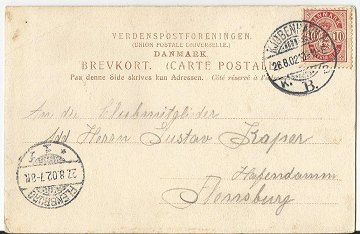 VERDENSPOSTFORENINGEN.
(UNION POSTALE UNIVERSELLE.)
DANMARK.
BREVKORT. (CARTE POSTALE)
Paa denne Side skrives kun Adressen. Côté réservé à l'
DANMARK
10 10
KJØBENHAVN
26.8.02
K. B.
An die Clubmitglider
Herrn Gustav Kaper
Hafendamm
Flensburg
FLENSBURG
27.8.02.7-8